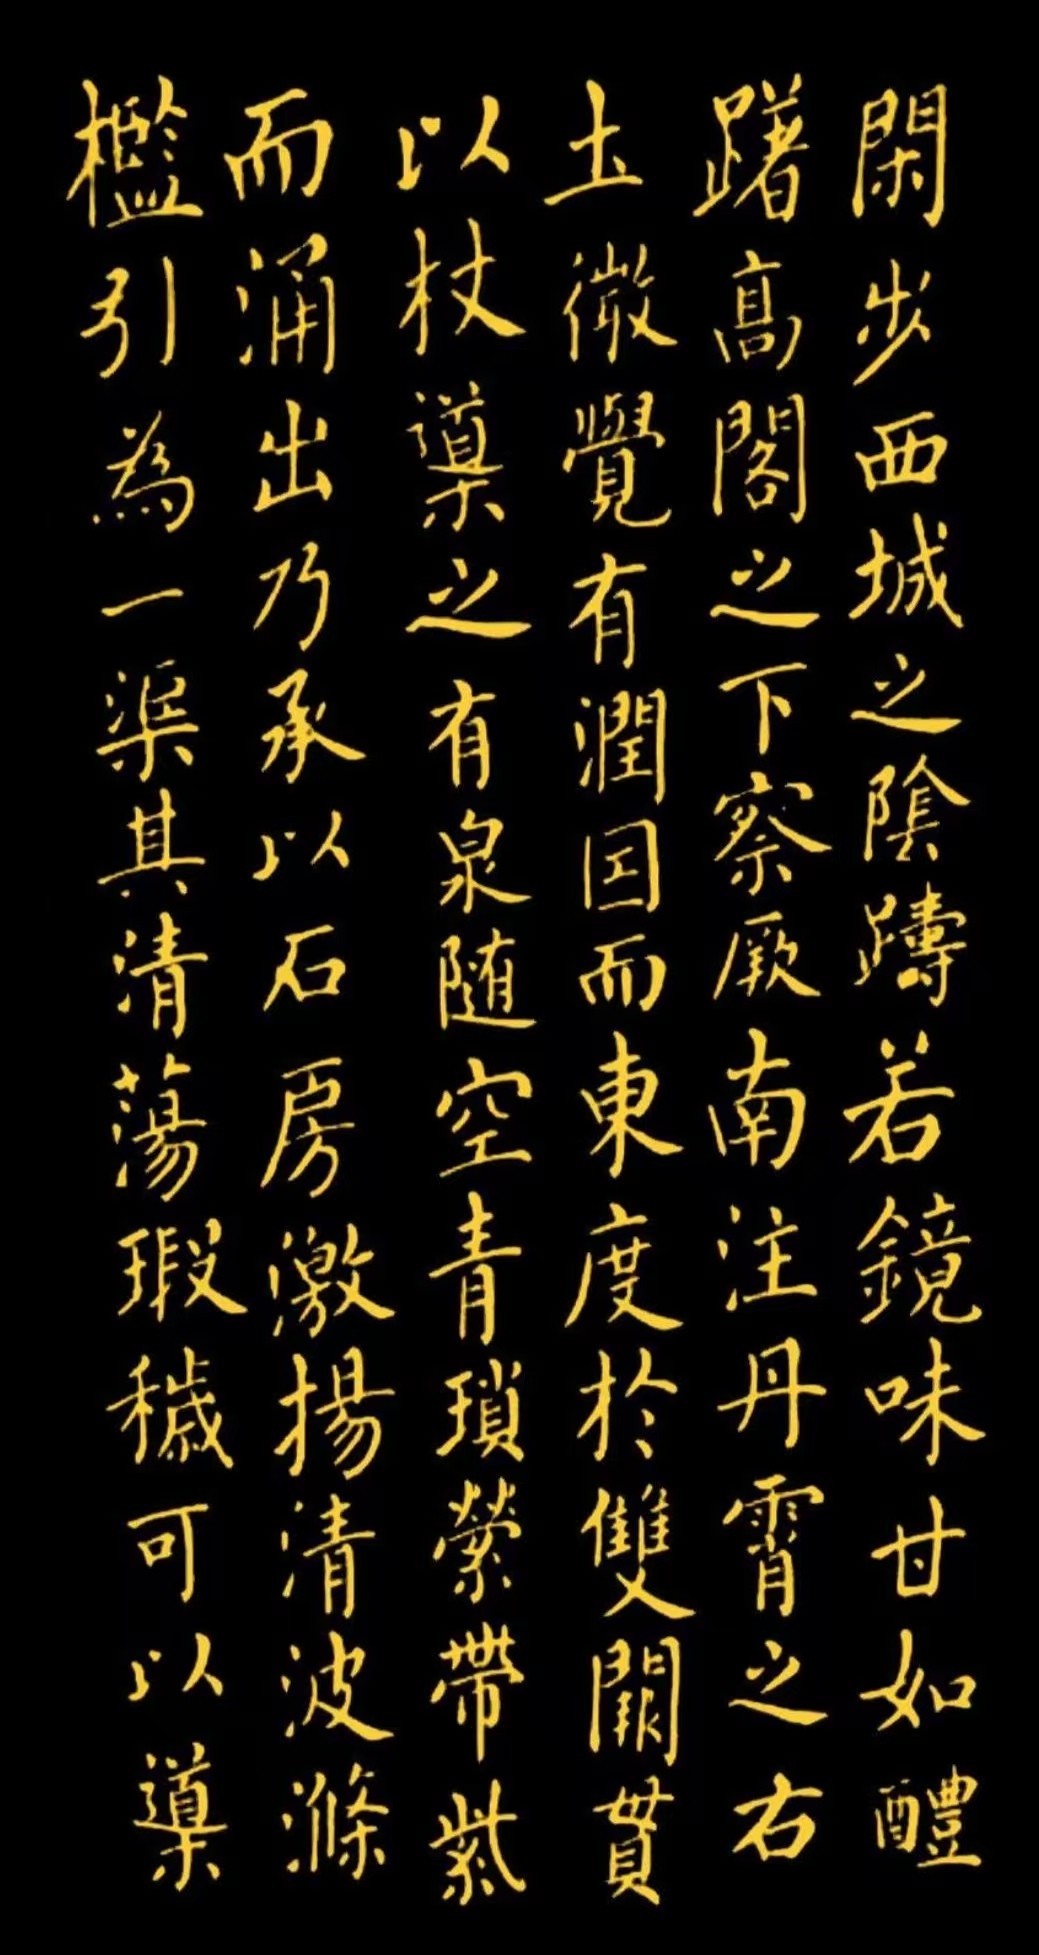 閑步西城之陰躊若鏡味甘如醴
躇高閣之下察厥南注丹霄之右
土微覺有潤因而東度於雙闕貫
以杖導之有泉随空青瑣縈帶紫
而涌出乃承以石房激揚清波滌
檻引為一渠其清蕩瑕穢可以導